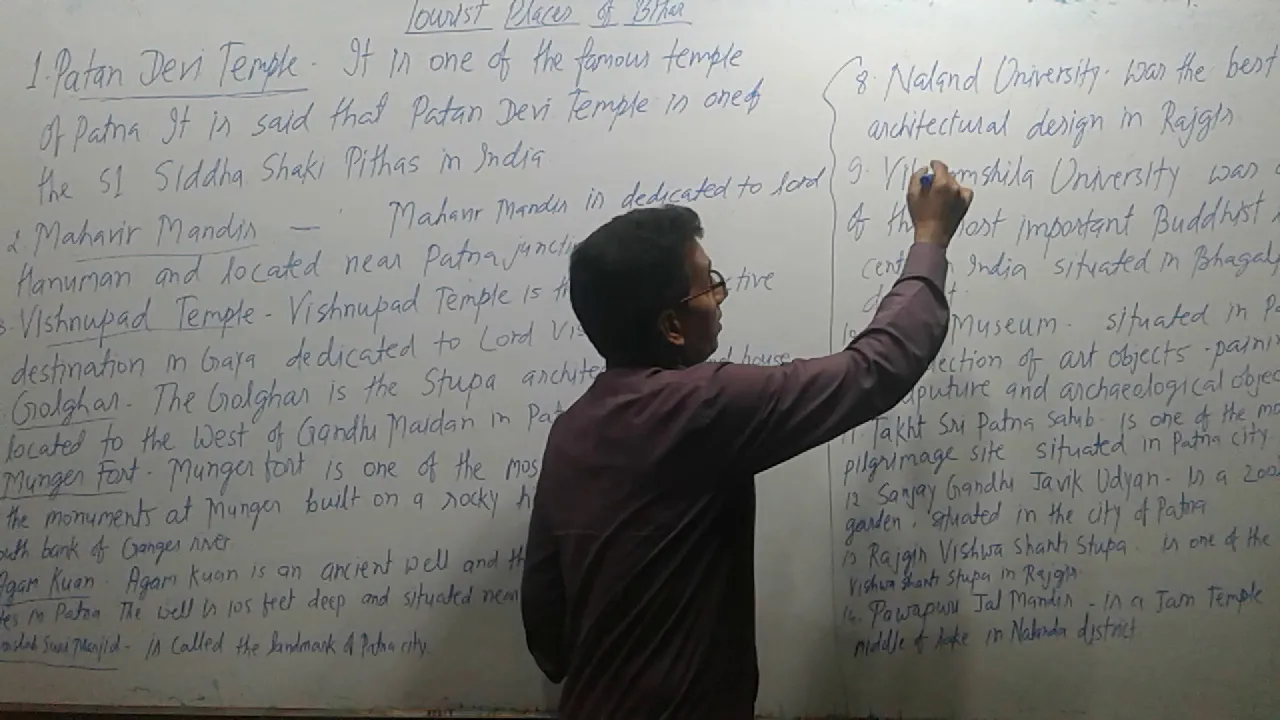 Tourist Places of Bihar
1. Patan Devi Temple - It is one of the famous temple
of Patna It is said that Patan Devi Temple is one of
the 51 Siddha Shaki Pithas in India
2. Mahavir Mandir — Mahavir Mandir is dedicated to lord
Hanuman and located near Patna juncti
3. Vishnupad Temple - Vishnupad Temple is th ctive
destination in Gaya dedicated to Lord Vis
Golghar - The Golghar is the Stupa archite and house
located to the West of Gandhi Maidan in Pat
Munger Fort - Munger fort is one of the mos
the monuments at Munger built on a rocky h
outh bank of Ganges river
Agam Kuan - Agam Kuan is an ancient well and th
tes in Patna The well is 105 feet deep and situated near
Suri Masjid - is called the landmark of Patna city.
8. Naland University - was the best
architectural design in Rajgir
9. Vik mshila University was
of th most important Buddhist
cent n India situated in Bhagalp
d t.
Museum - situated in Pa
lection of art objects - painin
lputure and archaeological objec
11. Takht Sri Patna Sahib - is one of the mo
pilgrimage site situated in Patna city
12 Sanjay Gandhi Javik Udyan - is a zoo
garden, situated in the city of Patna
13 Rajgir Vishwa Shanti Stupa - is one of the
Vishwa shanti stupa in Rajgir
14. Pawapuri Jal Mandir - is a Jain Temple
middle of lake in Nalanda district